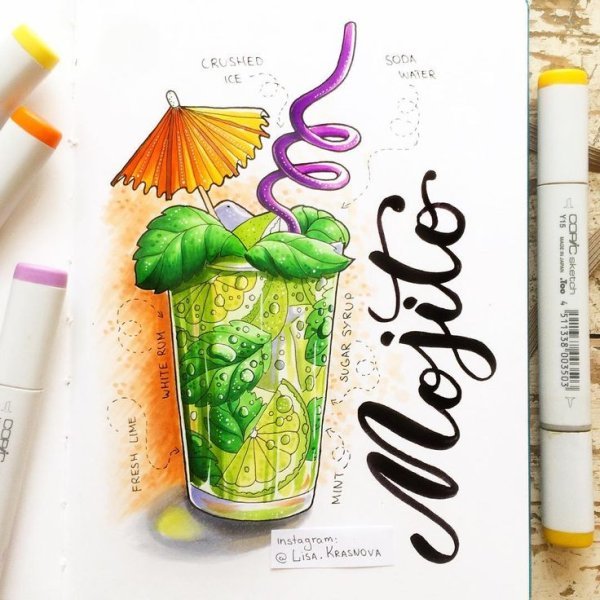 CRUSHED
ICE
SODA
WATER
WHITE RUM
SUGAR SYRUP
FRESH LIME
MINT
Mojito
instagram:
@ LISA.KRASNOVA
COPIC sketch
Y15
MADE IN JAPAN
.Too
4 511338 003503
COPIC